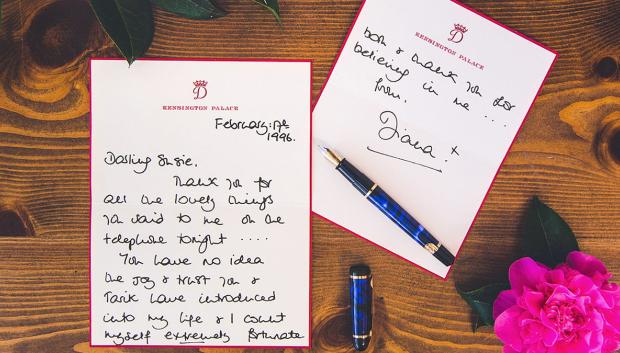 D
KENSINGTON PALACE
February: 17th
1996.
Darling Susie,
Thank you for
all the lovely things
you said to me on the
telephone tonight ....
You have no idea
the joy & trust you &
Tarik have introduced
into my life & I count
myself extremely fortunate
D
KENSINGTON PALACE
both & thank you for
believing in me ...
from,
Diana x